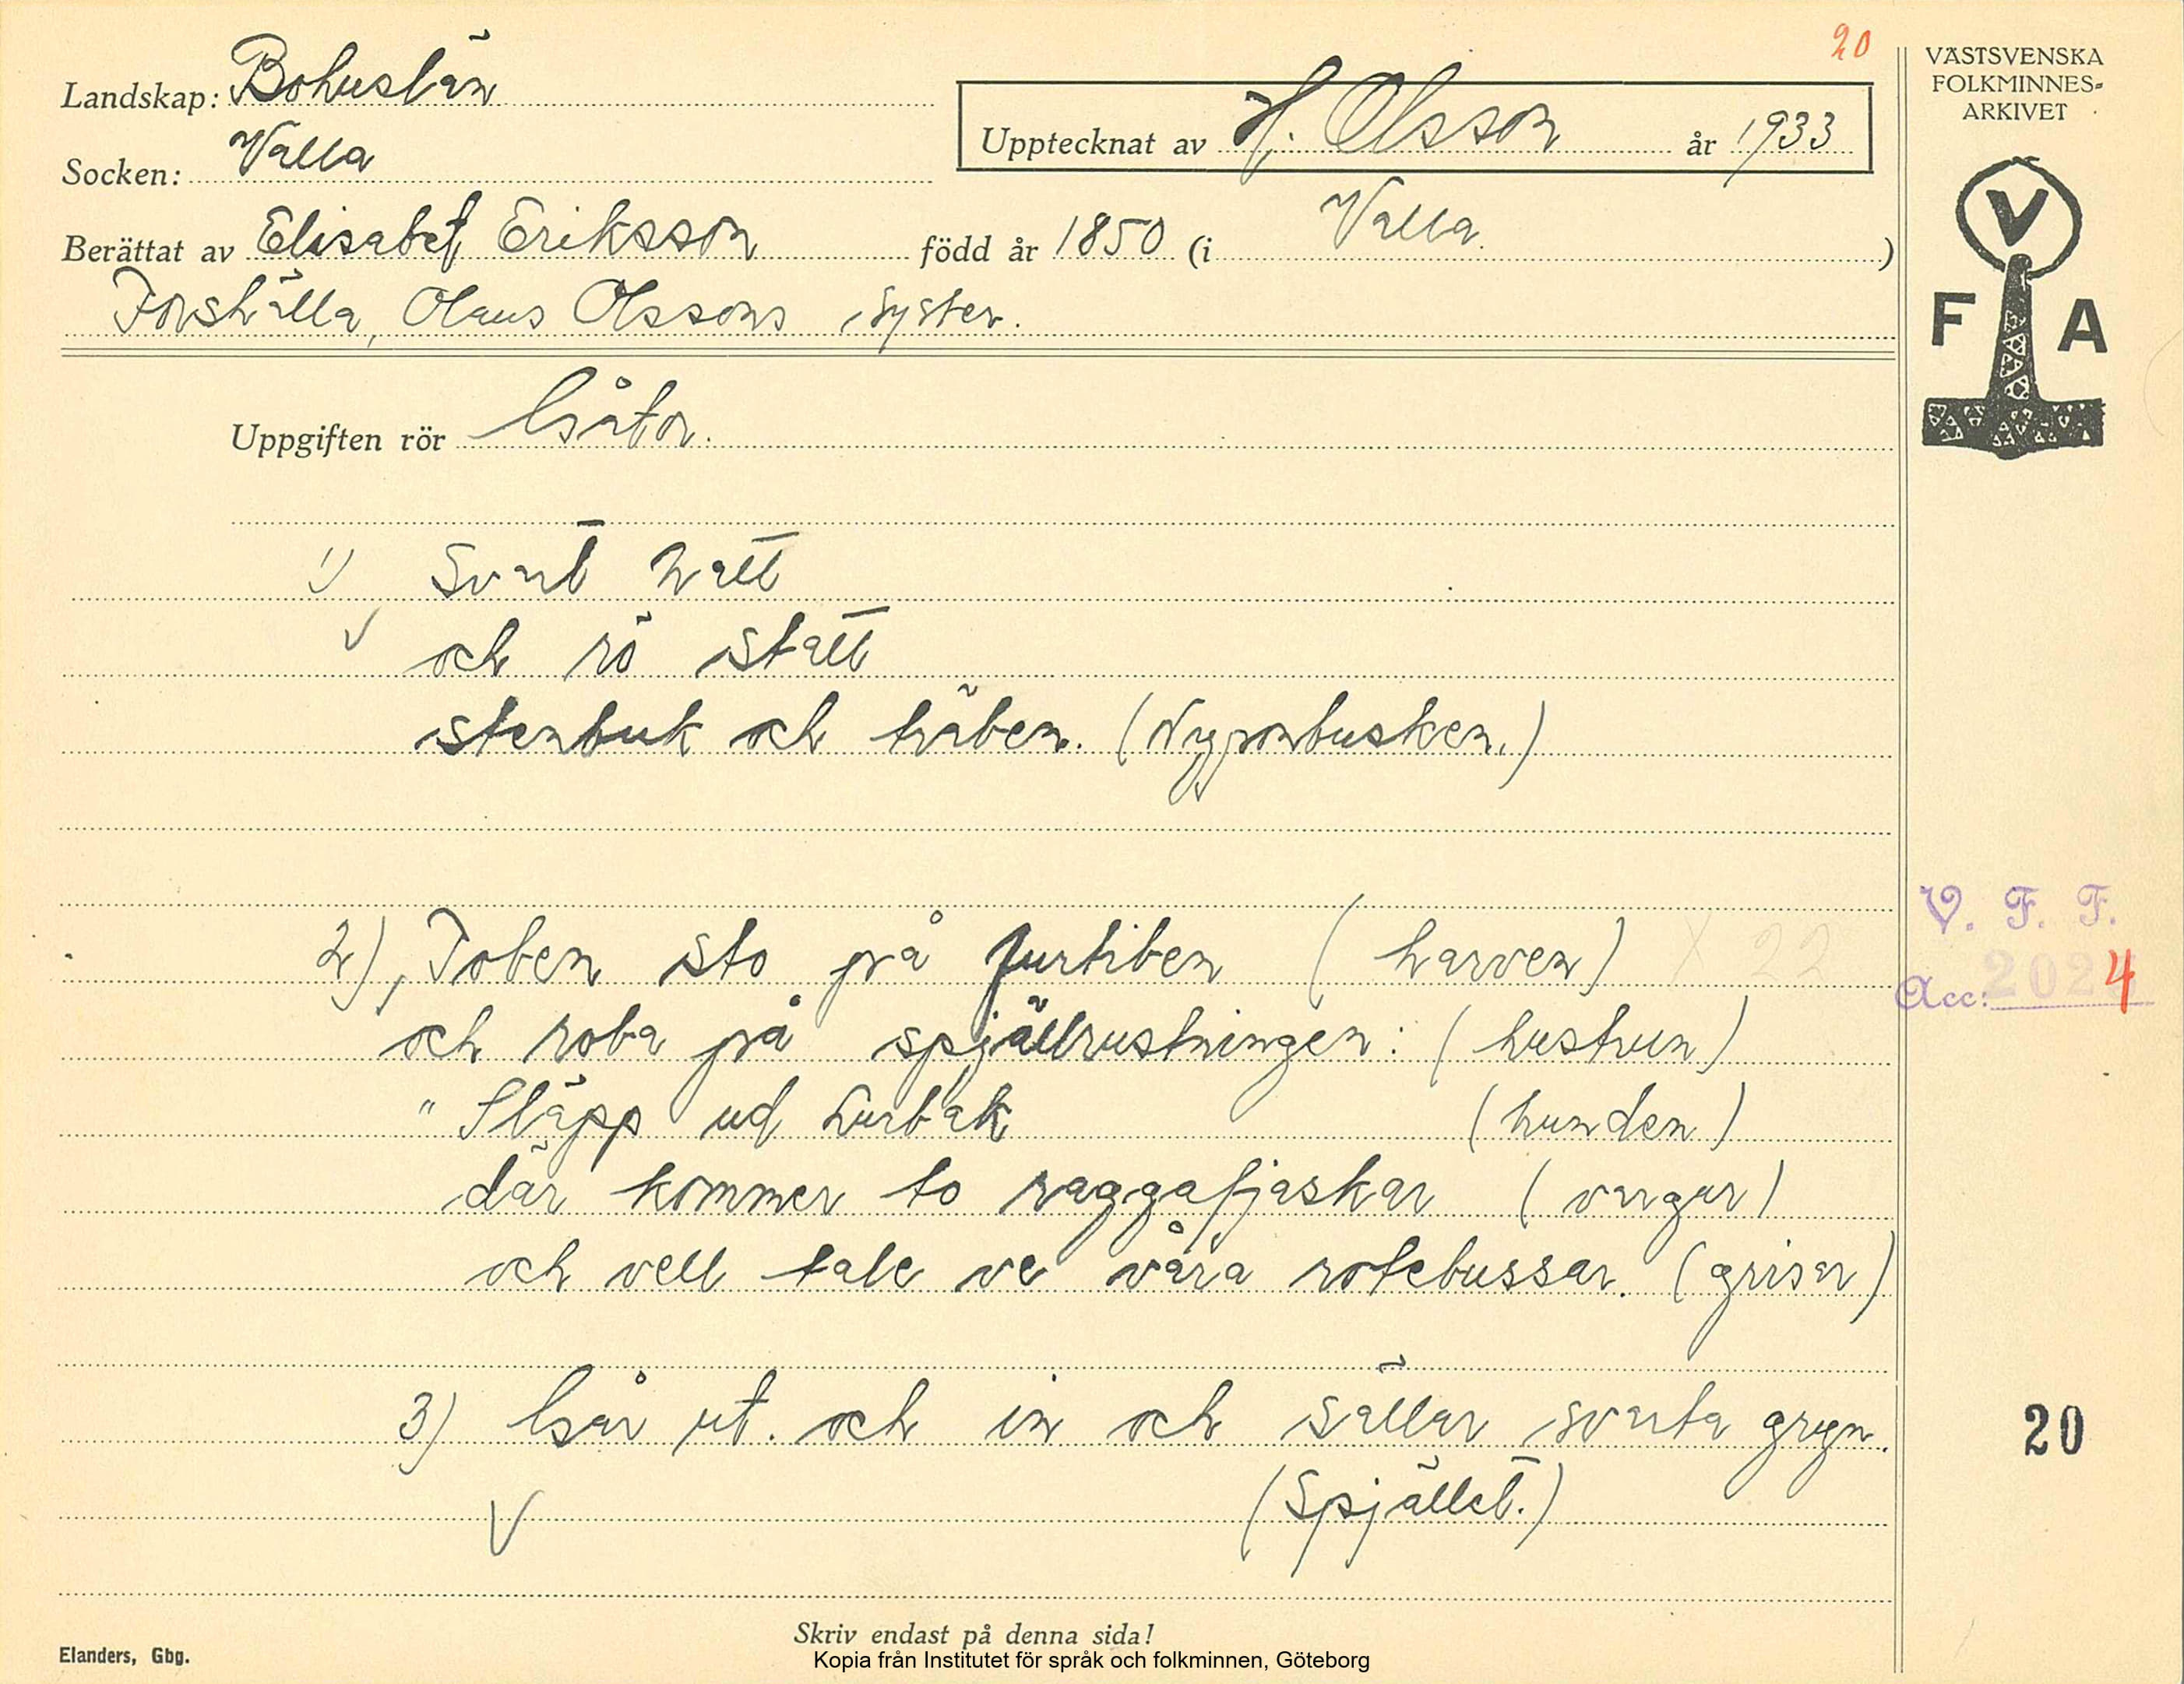 20
VÄSTSVENSKA
FOLKMINNES-
ARKIVET
Landskap: Bohuslän
Upptecknat av H. Olsson år 1933
Socken: Valla
Berättat av Elisabet Eriksson född år 1850 (i Valla )
Forshälla, Olaus Olssons syster.
V
F A
Uppgiften rör Gåtor.
1) Svart hatt
och rö statt
stenbuk och träben. (Nyponbusken.)
2), Toben sto på Jurtiben (harven) X 22
och roba på spjällrustningen: (hustrun)
" Släpp ud Lurbak (hunden)
där kommer to raggafjaskar (vargar)
och vell tale ve våra rotebussar. (grisar)
V. F. F.
Acc: 2024
3) Går ut. och in och sållar svarta gryn.
(Spjället.)
20
Skriv endast på denna sida!
Elanders, Gbg.
Kopia från Institutet för språk och folkminnen, Göteborg